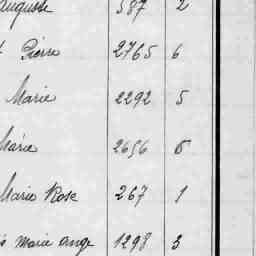 Auguste 587 2
Pierre 2765 6
Marie 2292 5
Marie 2656 6
Marie Rose 267 1
Marie Ange 1298 3